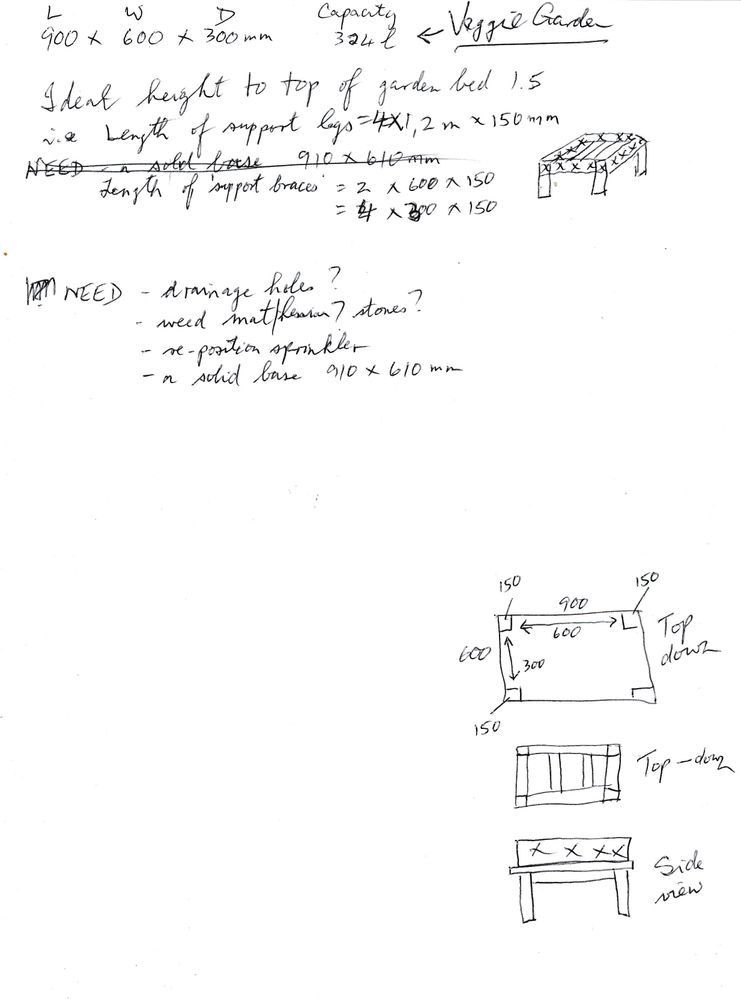 L W D Capacity
900 x 600 x 300 mm 324 l ← Veggie Garden
Ideal height to top of garden bed 1.5
i.e Length of support legs = 4x1,2 m x 150 mm
NEED - a solid base 910 x 610 mm
Length of support braces = 2 x 600 x 150
= 4 x 300 x 150
NEED - drainage holes?
- weed mat/hessian? stones?
- re-position sprinkler
- a solid base 910 x 610 mm
150 150
900
600
600
300
150
Top down
Top-down
Side view